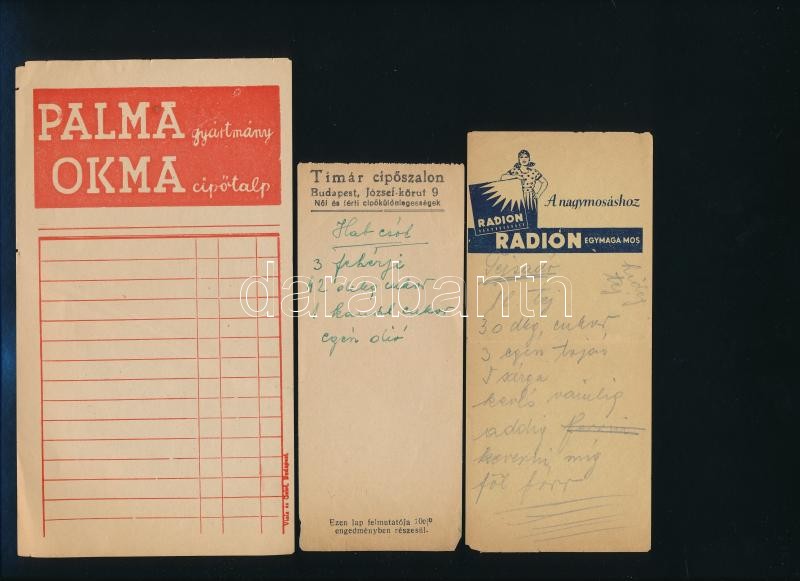 PALMA gyártmány
OKMA cipőtalp
Viola és Goitol, Budapest.
Tímár cipőszalon
Budapest, József-körut 9
Női és férfi cipőkülönlegességek
Hab csók
3 fehérje
12 dekg cukor
1 kanál cukor
egén dió
Ezen lap felmutatója 10%
engedményben részesül.
A nagymosáshoz
RADION
RADIÓN EGYMAGA MOS
tej
30 dkg, cukor
3 egén tojás
5 sárga
kevés vanilig
addig
keverni míg
föl forr
darabanth